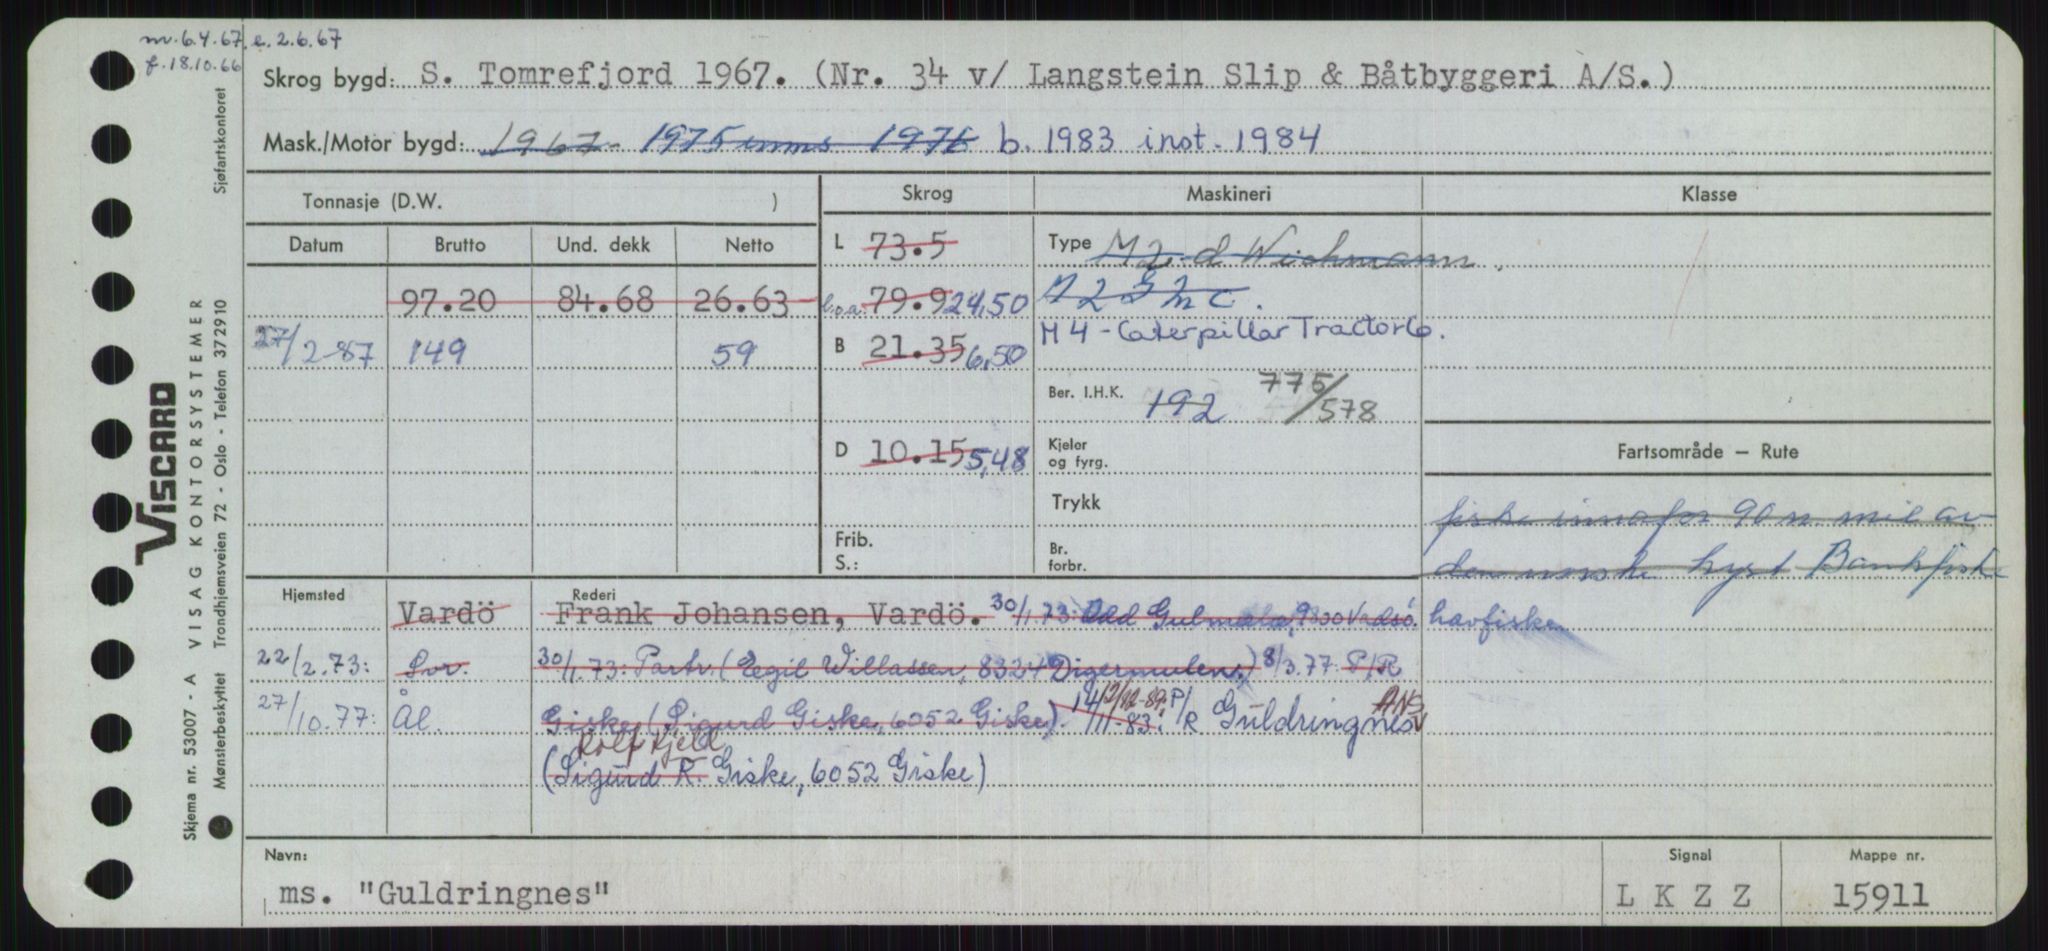 m. 6.4.67. e. 2.6.67
f. 18.10.66
Skrog bygd: S. Tomrefjord 1967. (Nr. 34 v/ Langstein Slip & Båtbyggeri A/S.)
Mask./Motor bygd: 1967 - 1975 inms 1976 b. 1983 inst. 1984
Tonnasje (D.W. ) Skrog Maskineri Klasse
Datum Brutto Und. dekk Netto L 73.5 Type M 2 - d Wichmann.
97.20 84.68 26.63 l.o.a. 79.9 24,50
27/2-87 149 59 B 21.35 6,50 M 4 - Caterpillar Tractor Co.
Ber. I.H.K. 192 775/578
D 10.15 5,48 Kjeler og fyrg. Fartsområde — Rute
Trykk fiske innafor 90 n. mil av
Frib. S.: Br. forbr. den norske kyst Bankfiske
Hjemsted Vardö Rederi Frank Johansen, Vardö. 30/1.73: Odd 9800 Vadsö. havfiske
22/2.73: Svr. 30/1.73: Partr. (Egil Willassen, 8324 Digermulen) 8/3.77: P/R
27/10.77: Ål. Giske (Sigurd Giske, 6052 Giske). 14/11-83: P/R Guldringnes ANS
Rolf Kjell
(Sigurd R. Giske, 6052 Giske)
Navn: ms. "Guldringnes" Signal L K Z Z Mappe nr. 15911
VISCARD
VISAG KONTORSYSTEMER
Skjema nr. 53007 - A
Mønsterbeskyttet Trondhjemsveien 72 - Oslo - Telefon 372910 Sjøfartskontoret